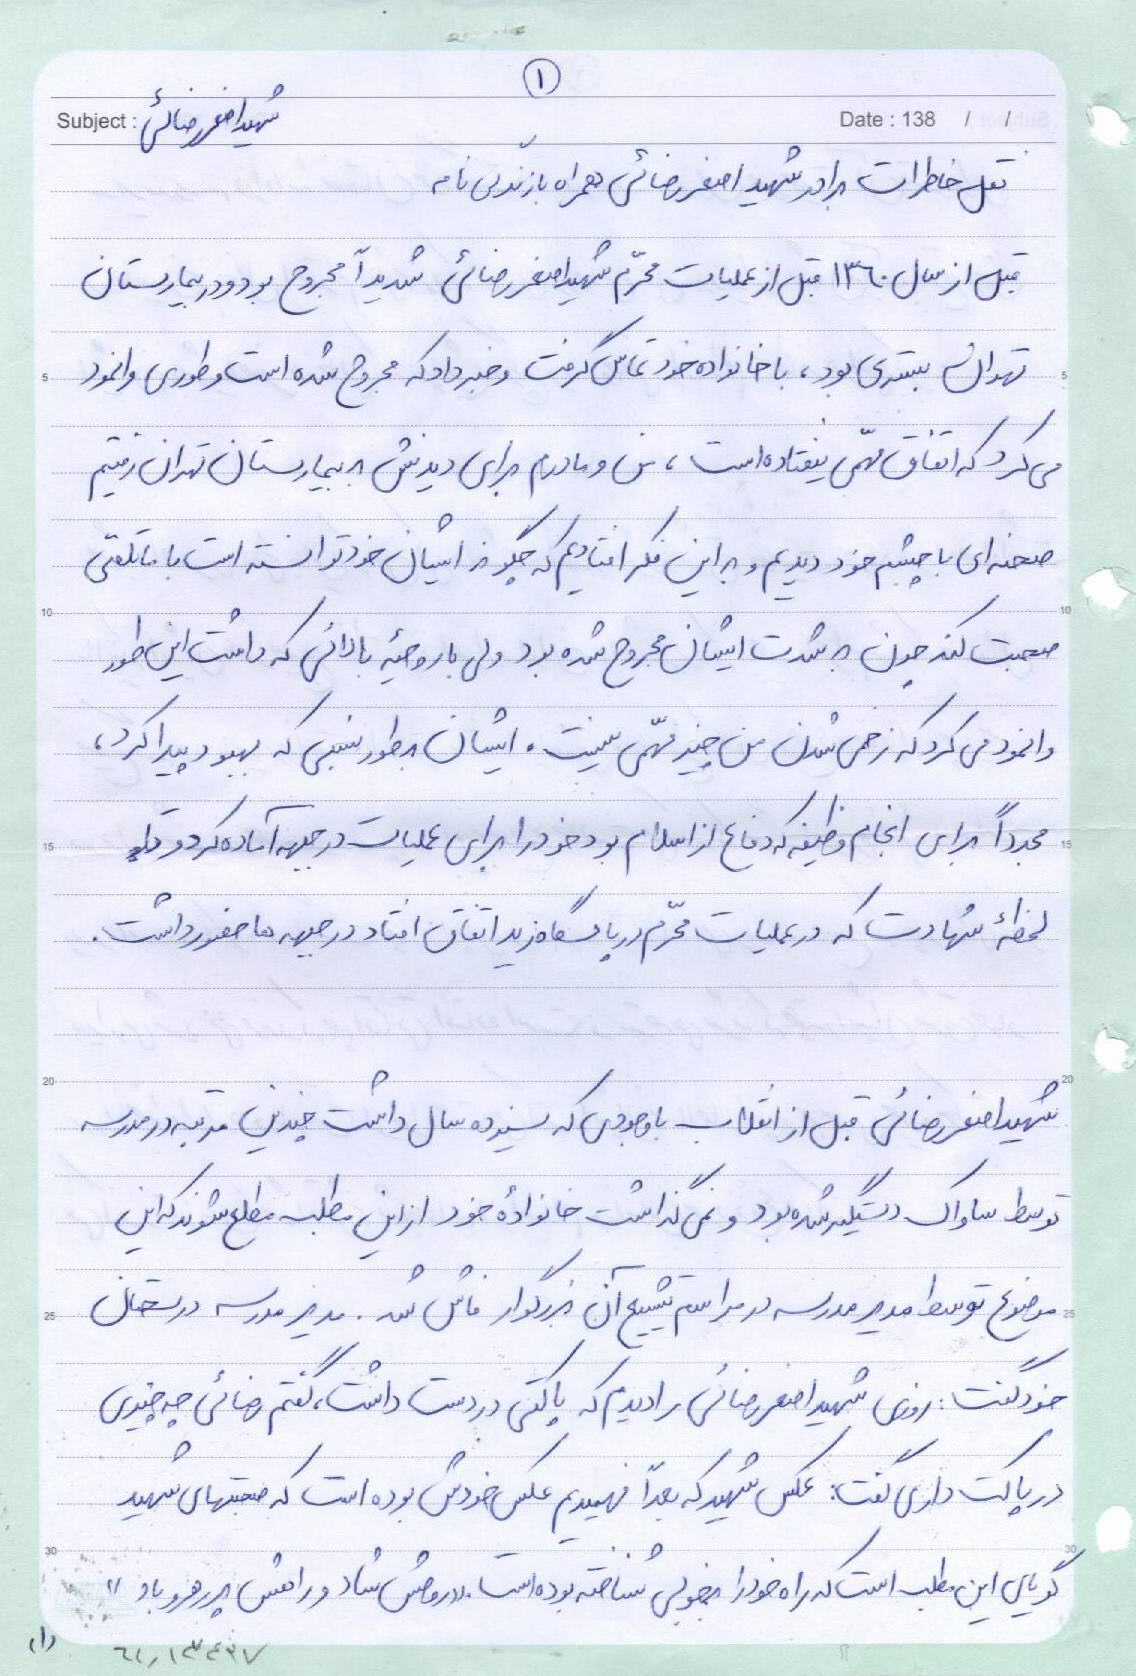 ۱
Subject : شهید اصغر رضائی
Date : 138 / /
نقل خاطرات برادر شهید اصغر رضائی همراه با زندگی نامه
قبل از سال ۱۳۶۰ قبل از عملیات محرّم شهید اصغر رضائی شدیداً مجروح بود و در بیمارستان
تهران بستری بود، با خانواده خود تماس گرفت و خبر داد که مجروح شده است و طوری وانمود
می کرد که اتفاق مهّمی نیفتاده است، من و مادرم برای دیدنش به بیمارستان تهران رفتیم
صحنه ای با چشم خود دیدیم و به این فکر افتادیم که چگونه ایشان خود توانسته است با ما تلفنی
صحبت کند چون به شدت ایشان مجروح شده بود ولی با روحیّه بالائی که داشت این طور
وانمود می کرد که زخمی شدن من چیز مهّمی نیست. ایشان بطور نسبی که بهبود پیدا کرد،
مجدداً برای انجام وظیفه که دفاع از اسلام بود خود را برای عملیات در جبهه آماده کرد و تا
لحظهٔ شهادت که در عملیات محرّم در پاسگاه زید اتفاق افتاد در جبهه ها حضور داشت.
شهید اصغر رضائی قبل از انقلاب با وجودی که سیزده سال داشت چندین مرتبه در مدرسه
توسط ساواک دستگیر شده بود و نمی گذاشت خانوادهٔ خود از این مطلب مطلع شوند که این
موضوع توسط مدیر مدرسه در مراسم تشییع آن بزرگوار فاش شد. مدیر مدرسه در سخنان
خود گفت: روزی شهید اصغر رضائی را دیدم که پاکتی در دست داشت، گفتم رضائی چه چیزی
در پاکت داری گفت: عکس شهید که بعداً فهمیدیم عکس خودش بوده است که صحبتهای شهید
گویای این مطلب است که راه خود را بخوبی شناخته بوده است. «روحش شاد و راهش پر رهرو باد»
(۱)
۶۱٫۱۳۴۳۷